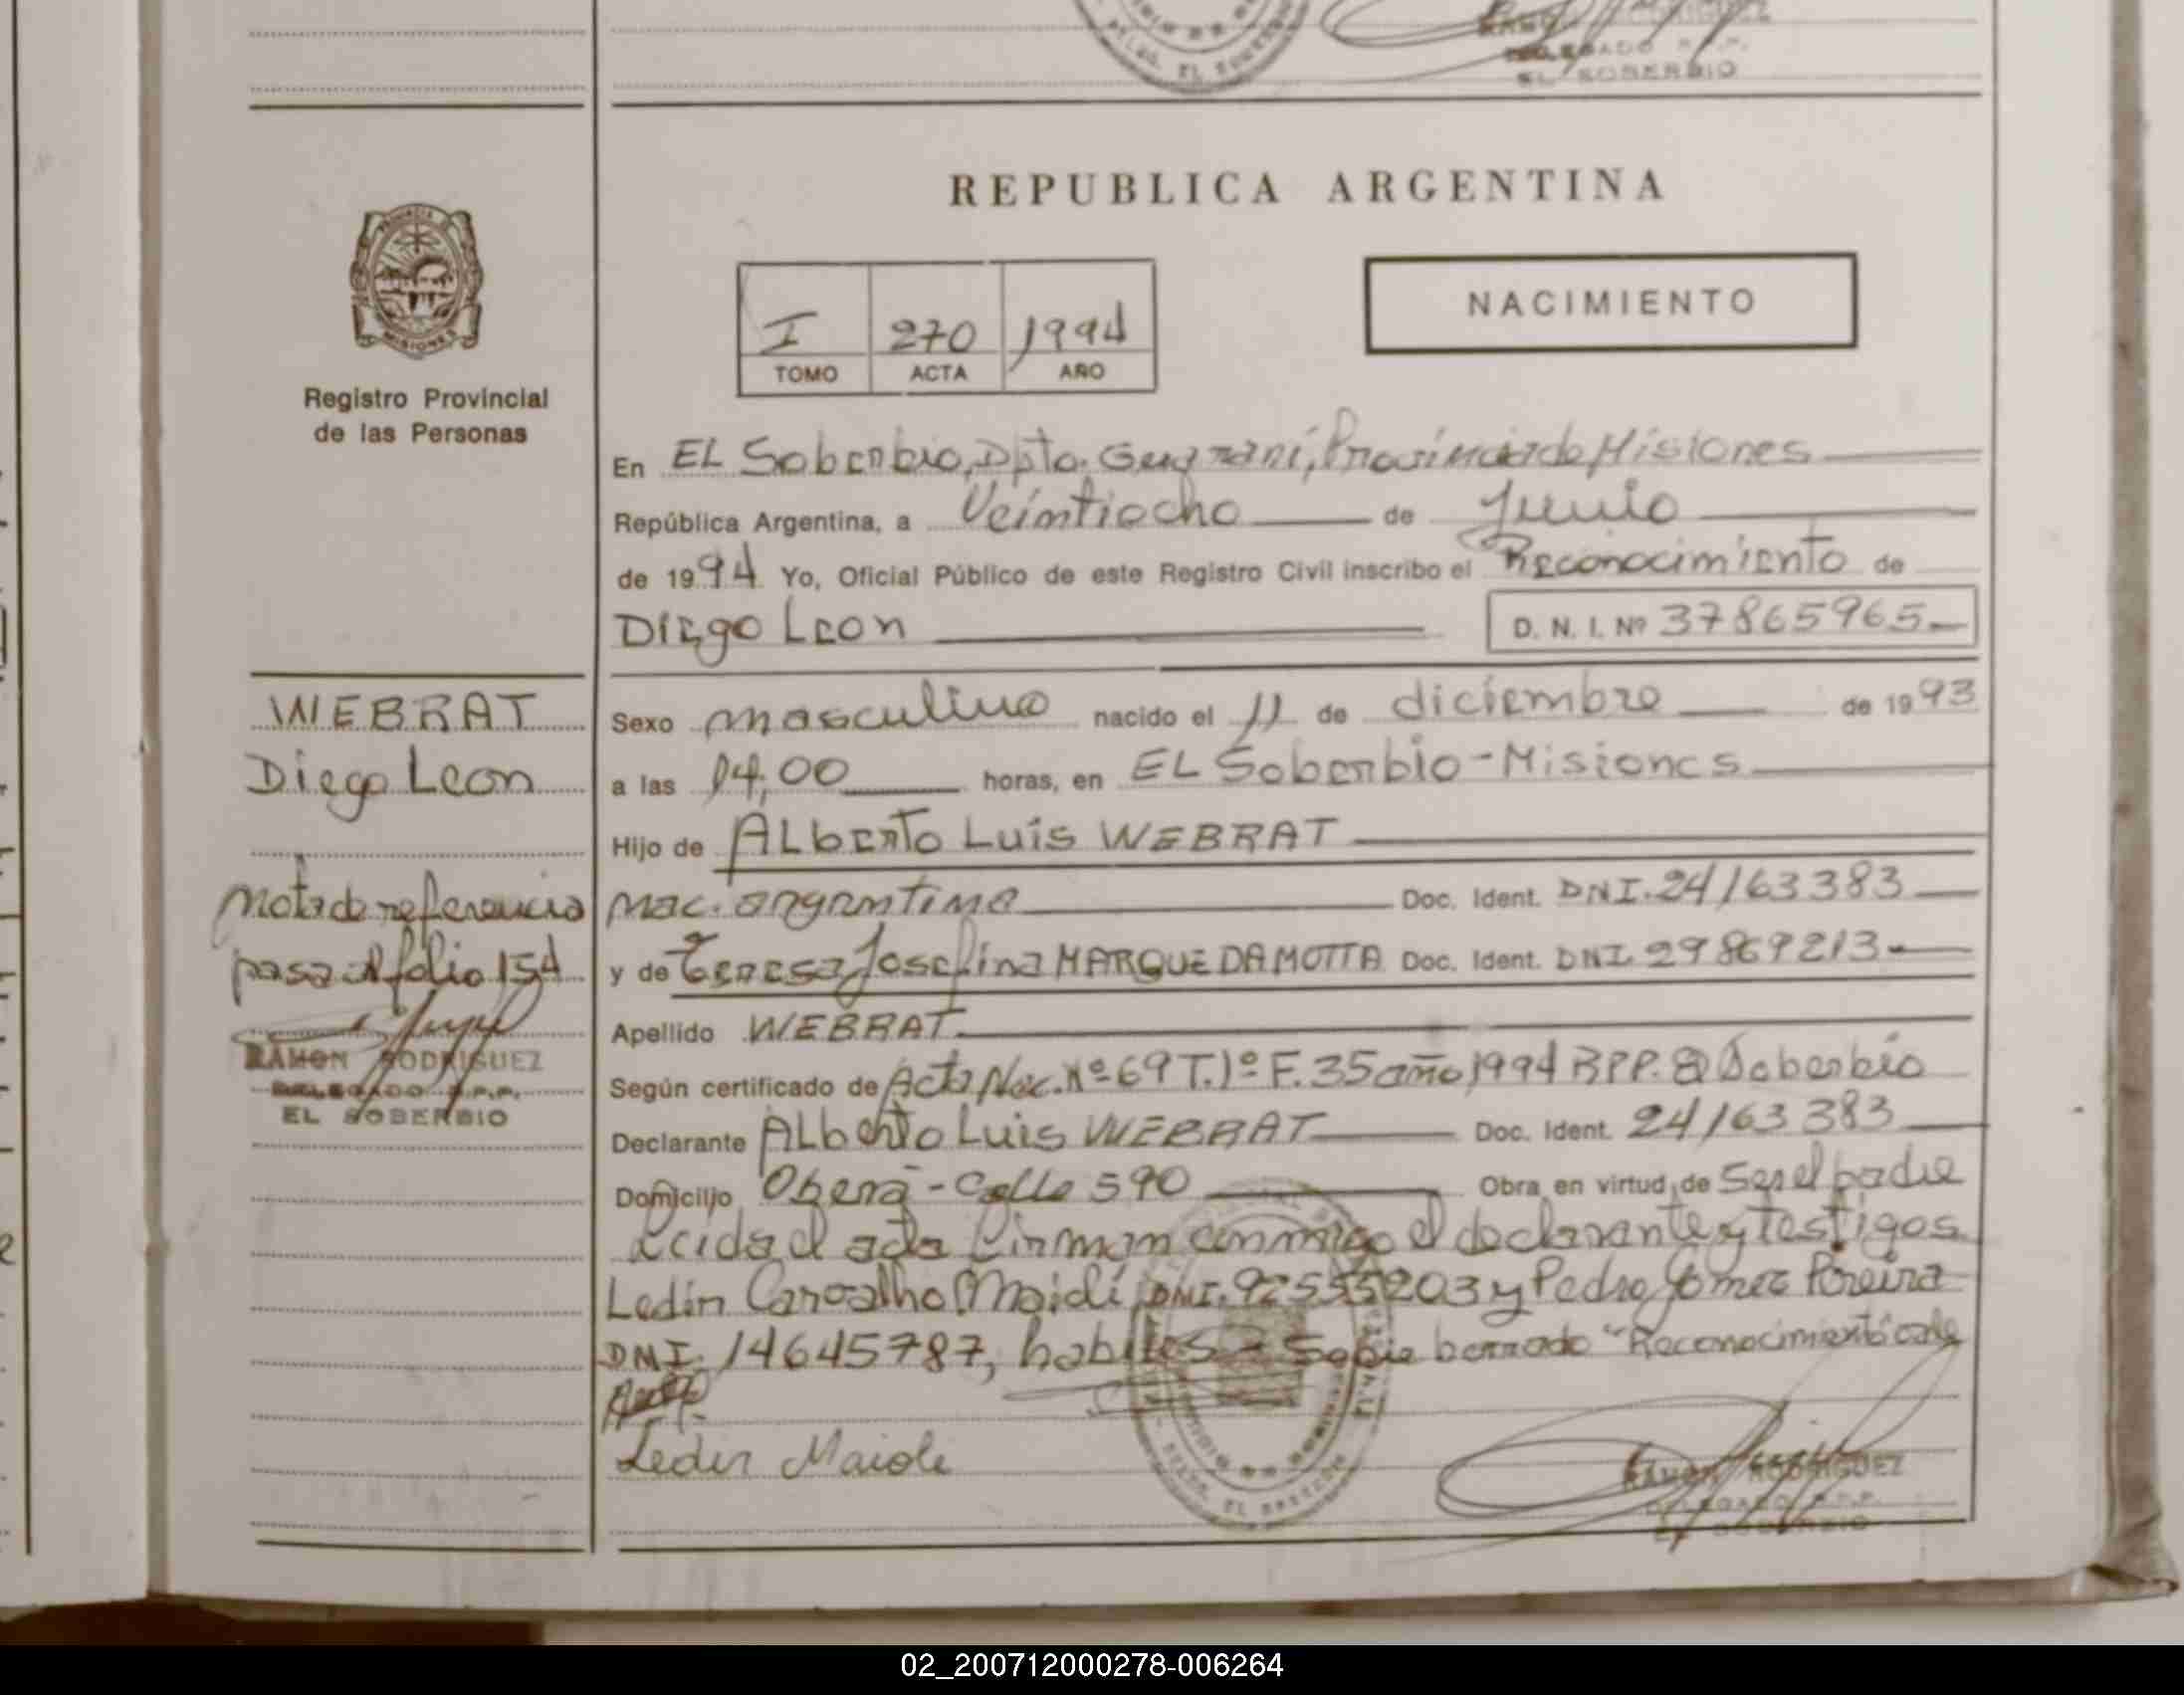 RAMON RODRIGUEZ
DELEGADO R.P.P.
EL SOBERBIO
REPUBLICA ARGENTINA
PROVINCIA DE
MISIONES
Registro Provincial
de las Personas
I 270 1994
TOMO ACTA AÑO
NACIMIENTO
En EL Soberbio, Dpto. Guarani, Provincia de Misiones
República Argentina, a Veintiocho de Junio
de 1994 Yo, Oficial Público de este Registro Civil inscribo el Reconocimiento de
Diego Leon D. N. I. Nº 37865965
WEBRAT
Diego Leon
Nota de referencia
pasa al folio 154
RAMON RODRIGUEZ
DELEGADO R.P.P.
EL SOBERBIO
Sexo masculino nacido el 11 de diciembre de 1993
a las 14,00 horas, en EL Soberbio - Misiones
Hijo de ALberto Luis WEBRAT
nac. argentina Doc. Ident. DNI. 24163383
y de Teresa Josefina MARQUE DA MOTTA Doc. Ident. DNI 29869213
Apellido WEBRAT
Según certificado de Acta Nac. Nº 69 T. 1º F. 35 año 1994 RPP. El Soberbio
Declarante ALberto Luis WEBRAT Doc. Ident. 24163383
Domicilio Oberá - Calle 590 Obra en virtud de Ser el padre
Leida el acta firman conmigo el declarante y testigos
Ledin Carvalho Maidi, DNI. 92555203 y Pedro Gomez Pereira
DNI. 14645787, habiles - Sobre borrado "Reconocimiento" vale
RAMON RODRIGUEZ
DELEGADO R.P.P.
EL SOBERBIO
02_200712000278-006264